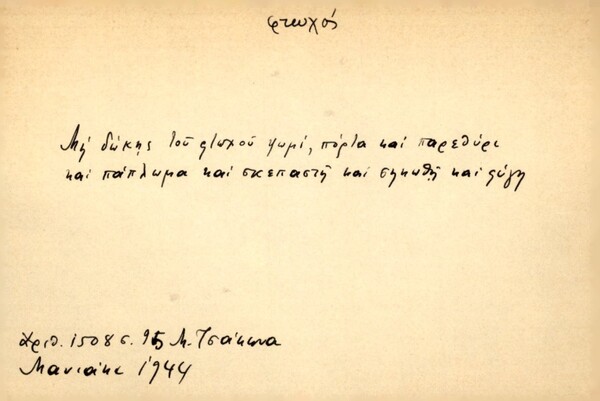 φτωχός
Μή δώκης τοῦ φτωχοῦ ψωμί, πόρτα καί παρεθύρι
καί πάπλωμα καί σκεπαστή καί σηκωθῆ καί φύγη
Ἀριθ. 1508 σ. 95 Μ. Τσάκωνα
Μανιάκι 1944